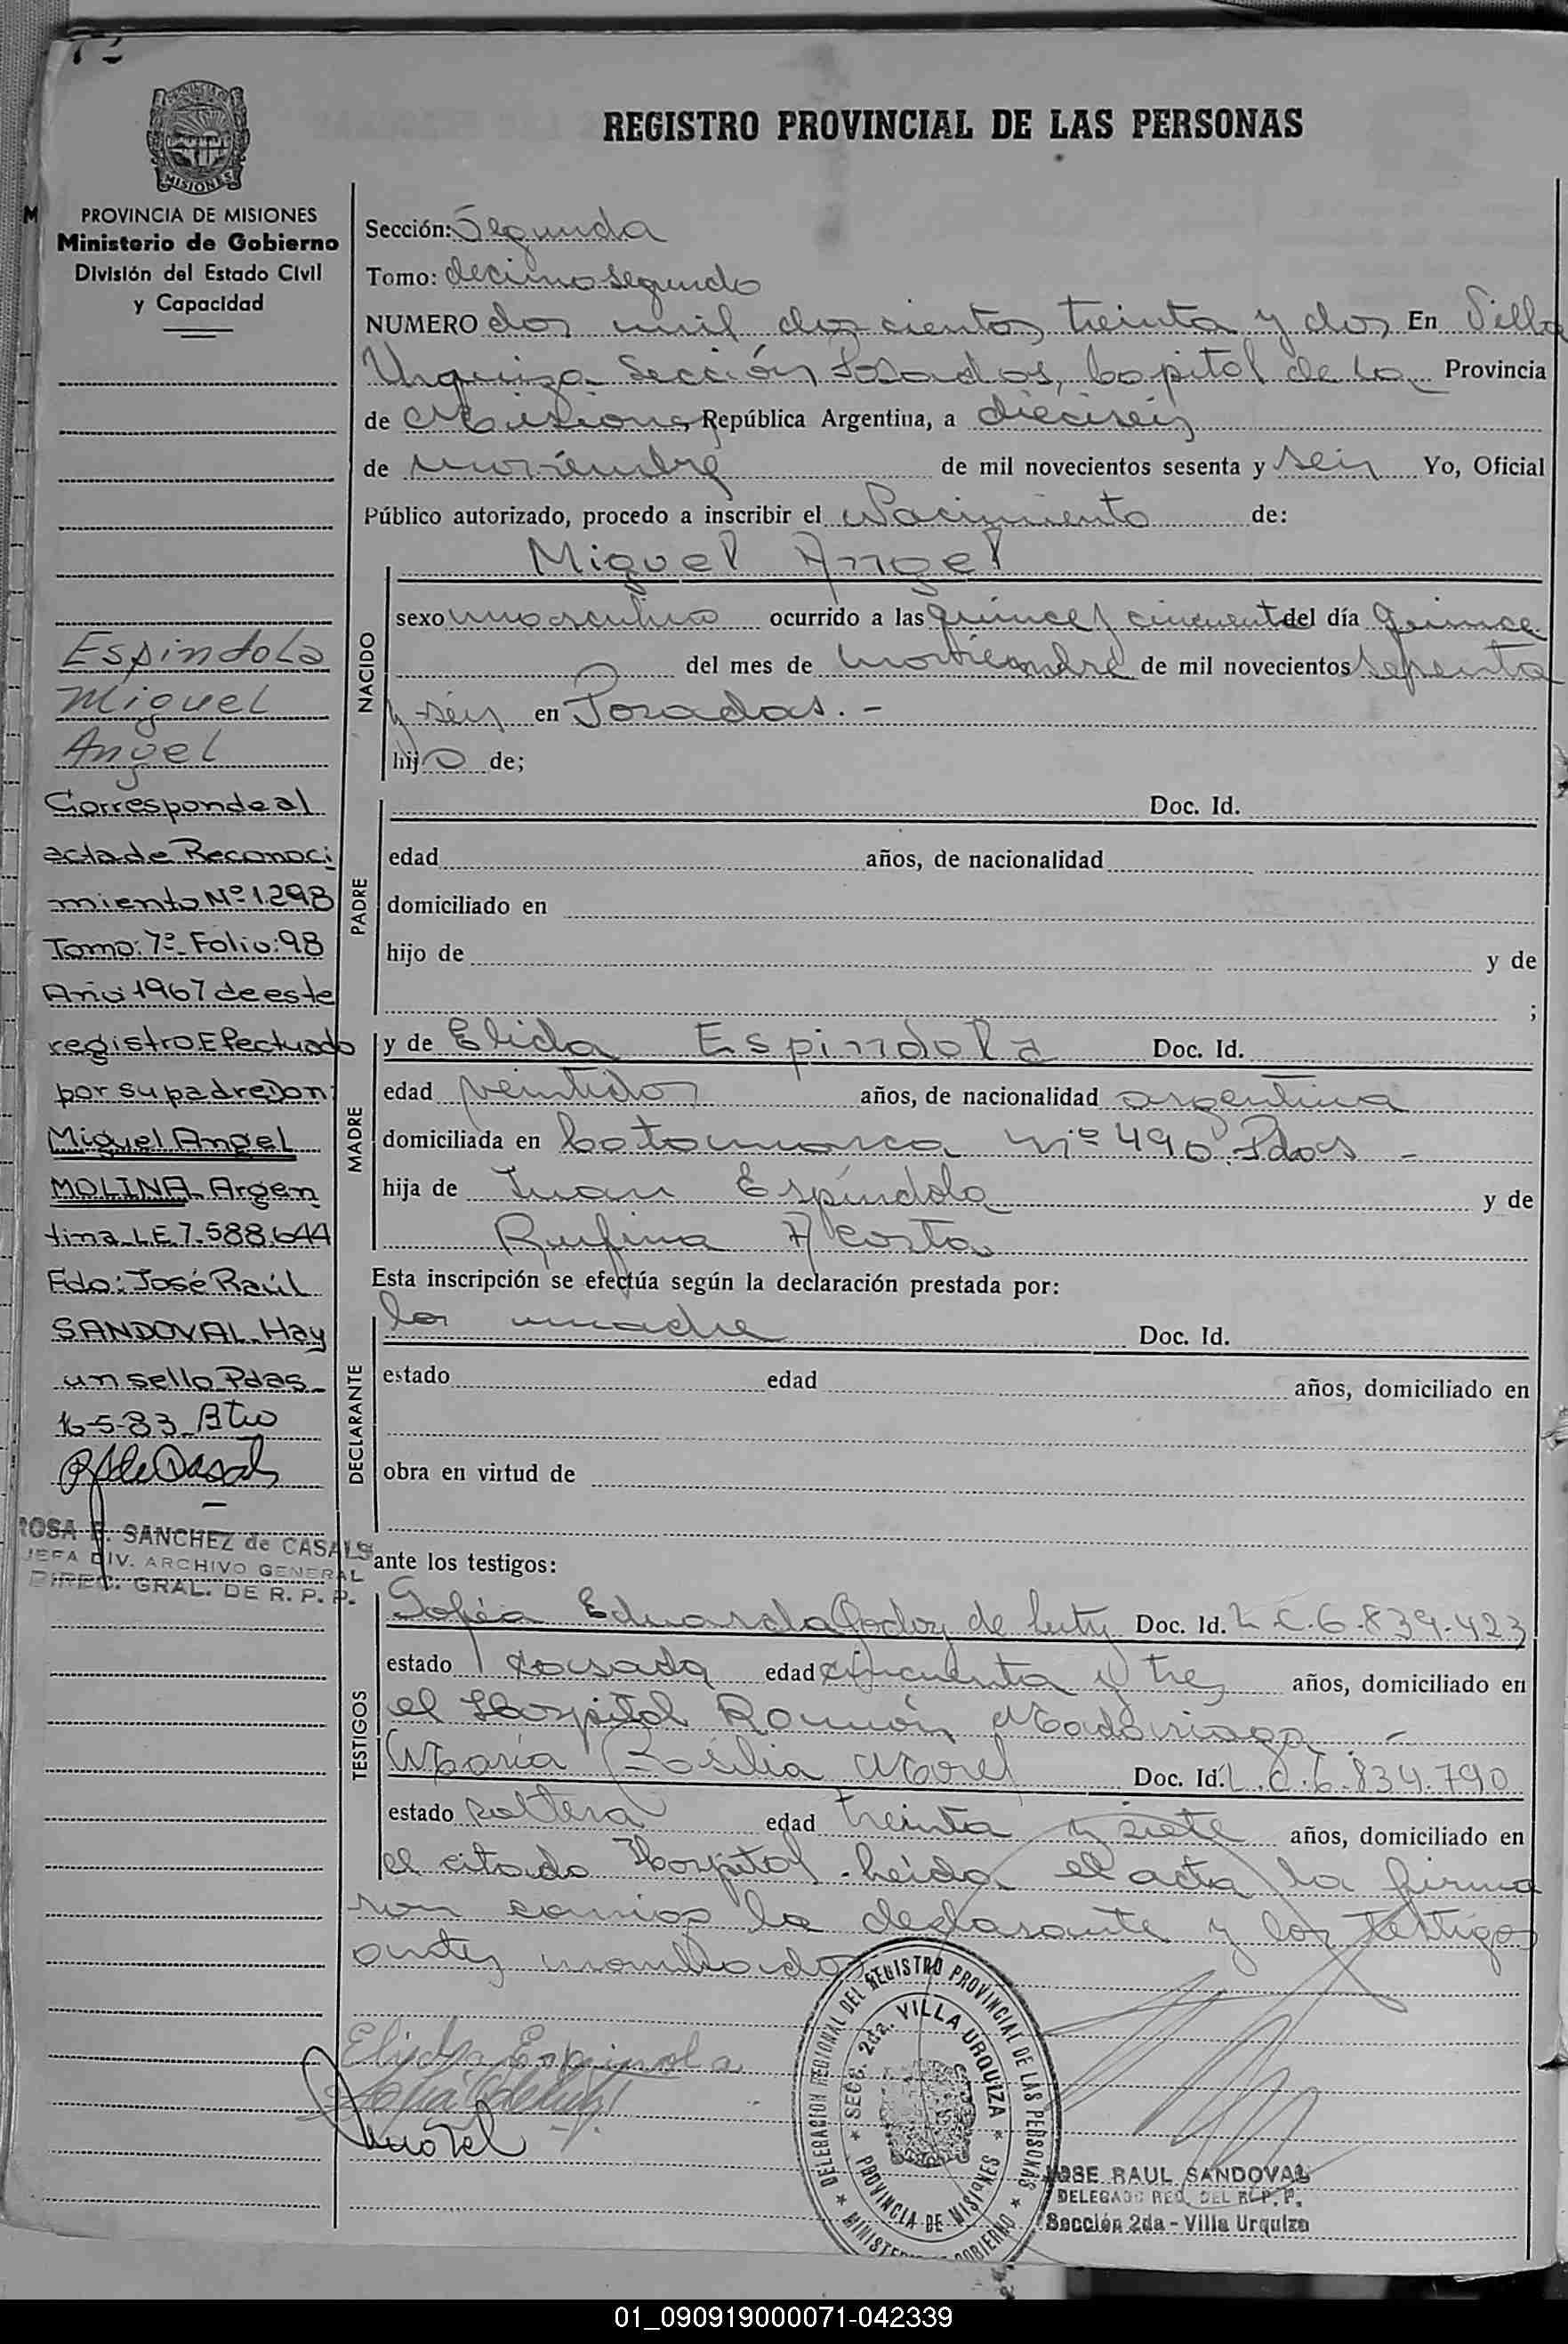 MISIONES
REGISTRO PROVINCIAL DE LAS PERSONAS
PROVINCIA DE MISIONES
Ministerio de Gobierno
División del Estado Civil
y Capacidad
Espindola
Miguel
Angel
Corresponde al
acta de Reconoci
miento Nº 1.298
Tomo: 7º Folio: 98
Año 1967 de este
registro Efectuado
por su padre Don:
Miguel Angel
MOLINA Argen
tina L.E. 7.588.644
Fdo: José Raúl
SANDOVAL. Hay
un sello Pdas
16-5-83
ROSA E. SANCHEZ de CASALS
JEFA DIV. ARCHIVO GENERAL
DIREC. GRAL. DE R. P. P.
Sección: Segunda
Tomo: decimo segundo
NUMERO dos mil doscientos treinta y dos En Villa
Urquiza Sección Posadas, Capital de la Provincia
de Misiones República Argentina, a dieciseis
de noviembre de mil novecientos sesenta y seis Yo, Oficial
Público autorizado, procedo a inscribir el Nacimiento de:
Miguel Angel
NACIDO
sexo masculino ocurrido a las quince y cincuenta del día quince
del mes de noviembre de mil novecientos sesenta
y seis en Posadas. -
hijo de;
PADRE
Doc. Id.
edad años, de nacionalidad
domiciliado en
hijo de y de
;
MADRE
y de Elida Espindola Doc. Id.
edad veintidos años, de nacionalidad argentina
domiciliada en Catamarca Nº 490 Pdas -
hija de Juan Espíndola y de
Rufina Acosta
Esta inscripción se efectúa según la declaración prestada por:
DECLARANTE
la madre Doc. Id.
estado edad años, domiciliado en
obra en virtud de
ante los testigos:
TESTIGOS
Sofía Eduarda Godoy de Doc. Id. L.C. 6.839.423
estado casada edad cincuenta y tres años, domiciliado en
el Hospital Ramón Madariaga. -
María Morel Doc. Id. L.C. 6.834.790
estado soltera edad treinta y siete años, domiciliado en
el citado Hospital. Leída el acta la firma
ron conmigo la declarante y los testigos
antes nombrados
Elida Espindola
Morel
DELEGACION REGIONAL DEL REGISTRO PROVINCIAL DE LAS PERSONAS
SECC. 2da. VILLA URQUIZA
PROVINCIA DE MISIONES
MINISTERIO DE GOBIERNO
JOSE RAUL SANDOVAL
DELEGADO REG. DEL R. P. P.
Sección 2da - Villa Urquiza
01_090919000071-042339